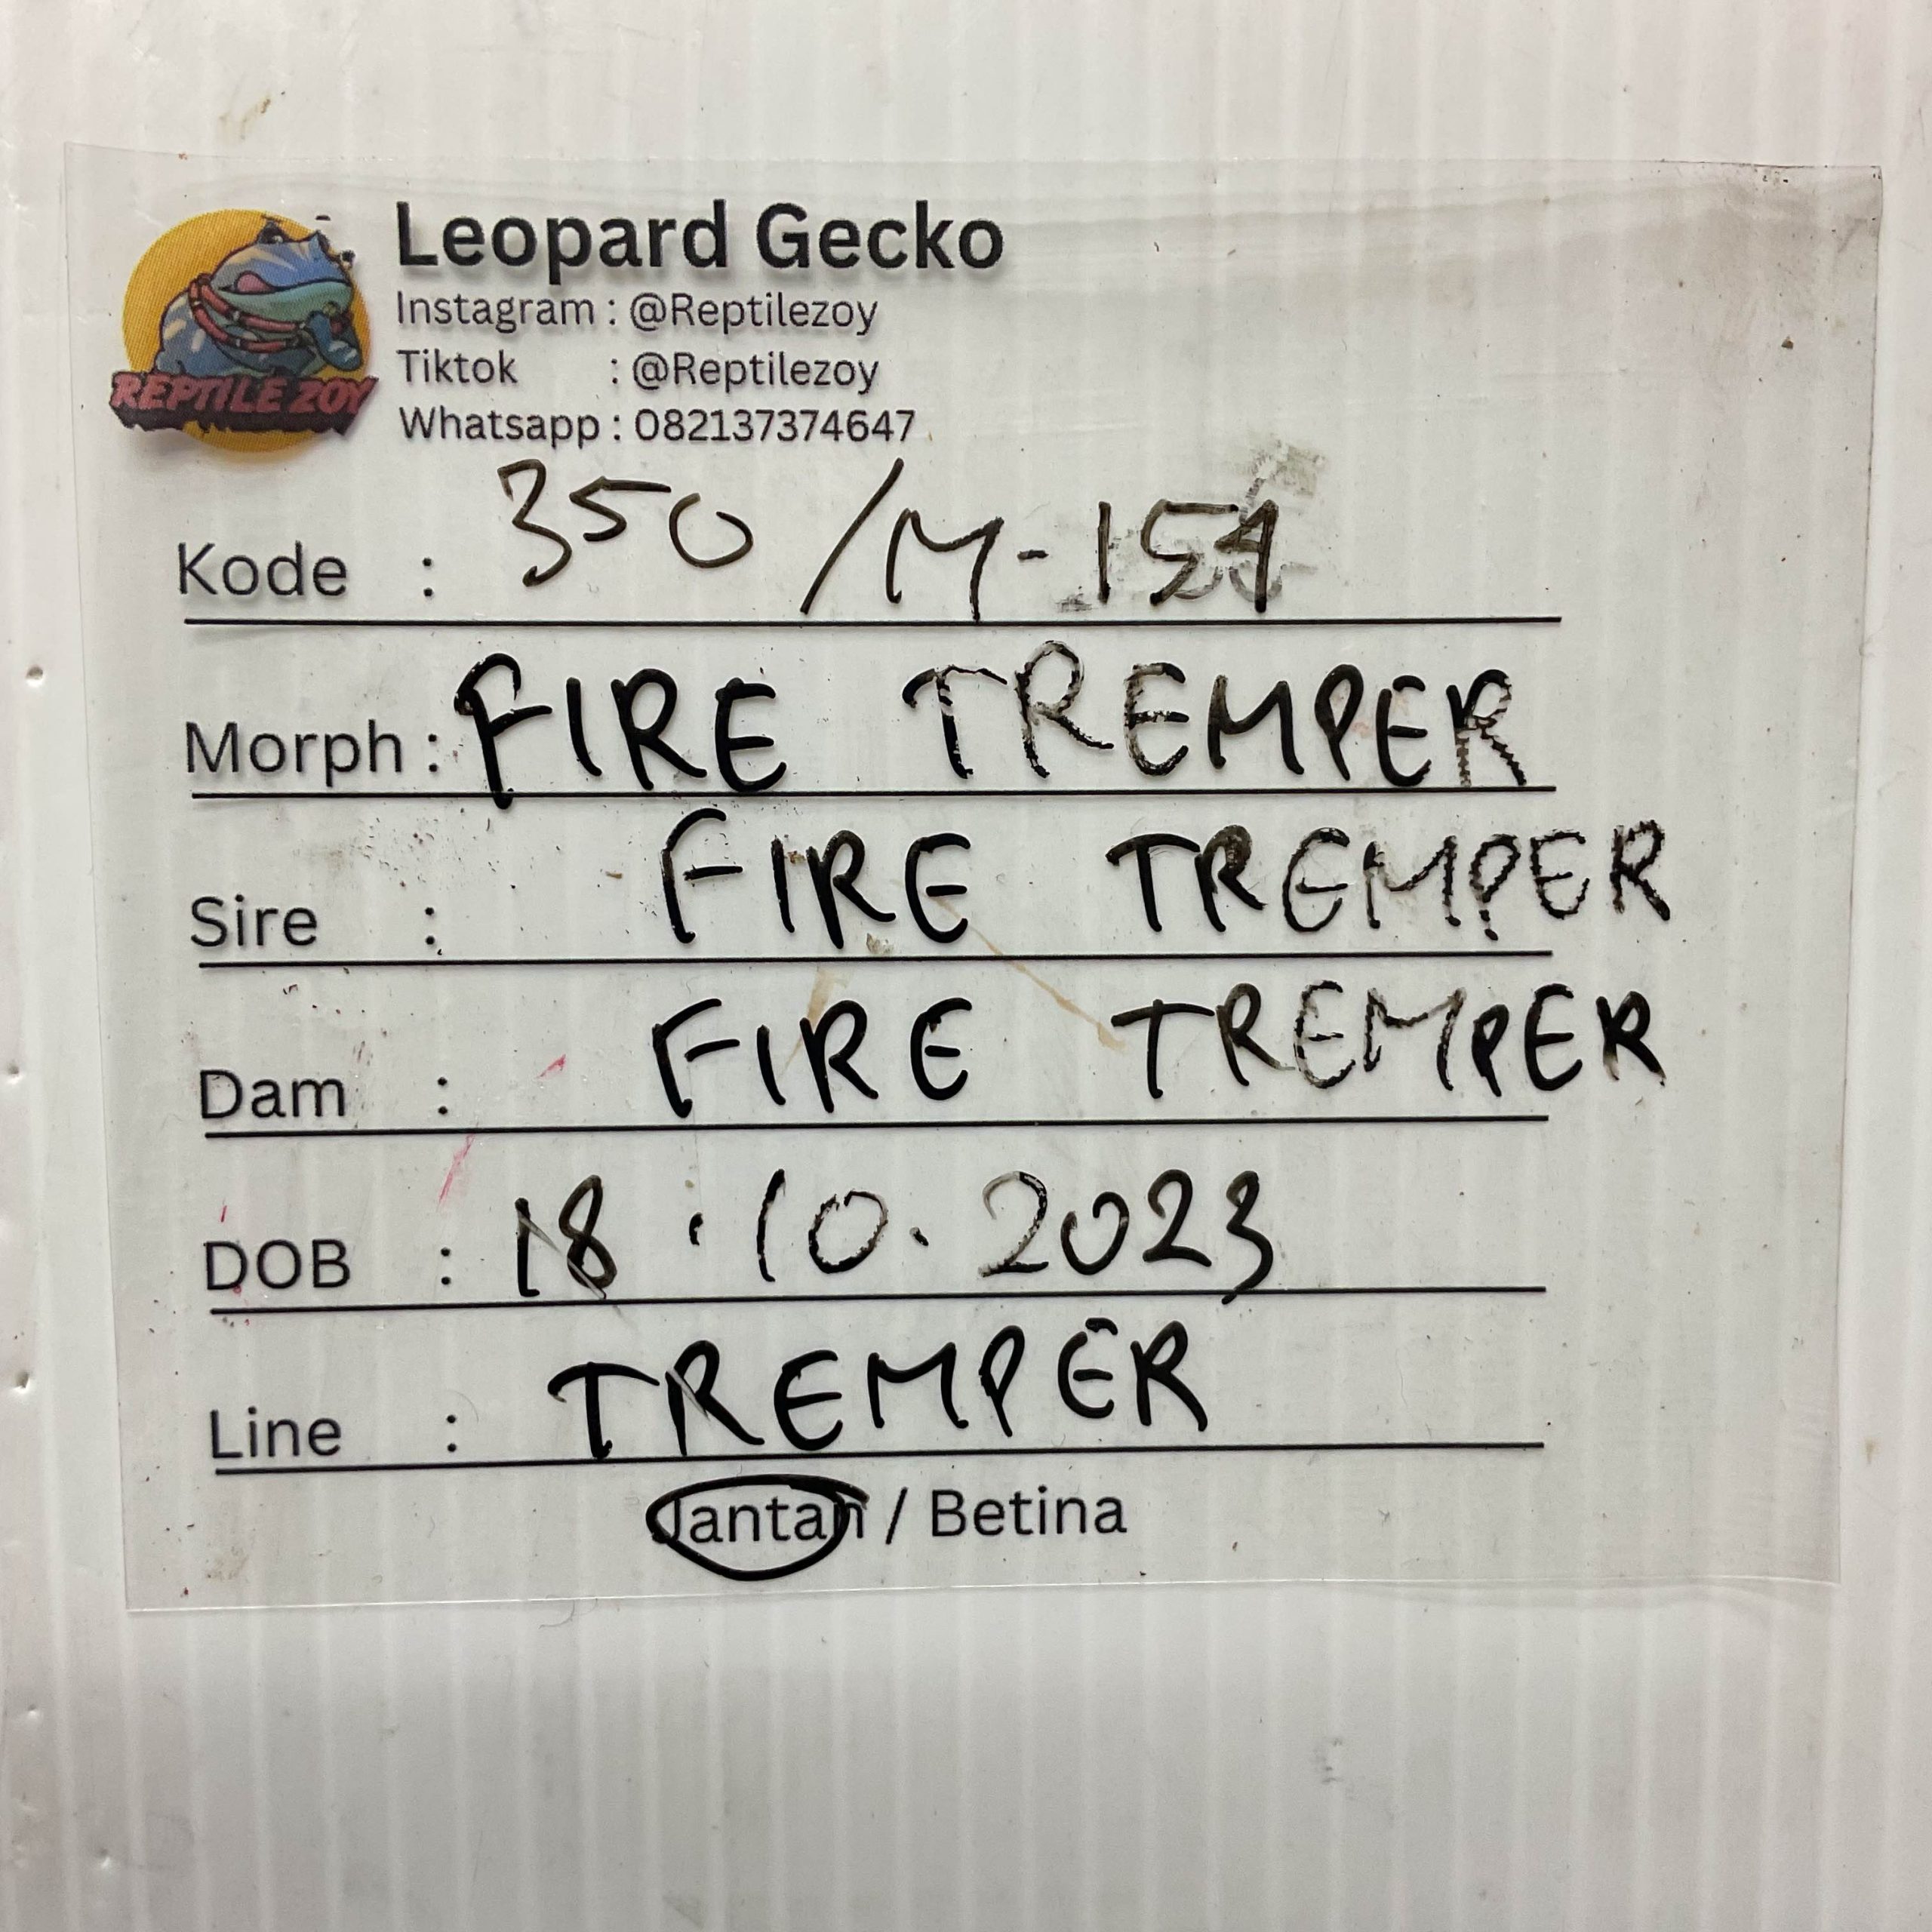 REPTILE ZOY
Leopard Gecko
Instagram : @Reptilezoy
Tiktok : @Reptilezoy
Whatsapp : 082137374647
Kode : 350 / M-154
Morph : FIRE TREMPER
Sire : FIRE TREMPER
Dam : FIRE TREMPER
DOB : 18.10.2023
Line : TREMPER
Jantan / Betina